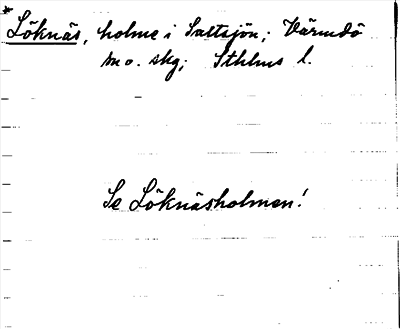 * Löknäs, holme i Saltsjön; Värmdö
m o. skg; Sthlms l.
Se Löknäsholmen!